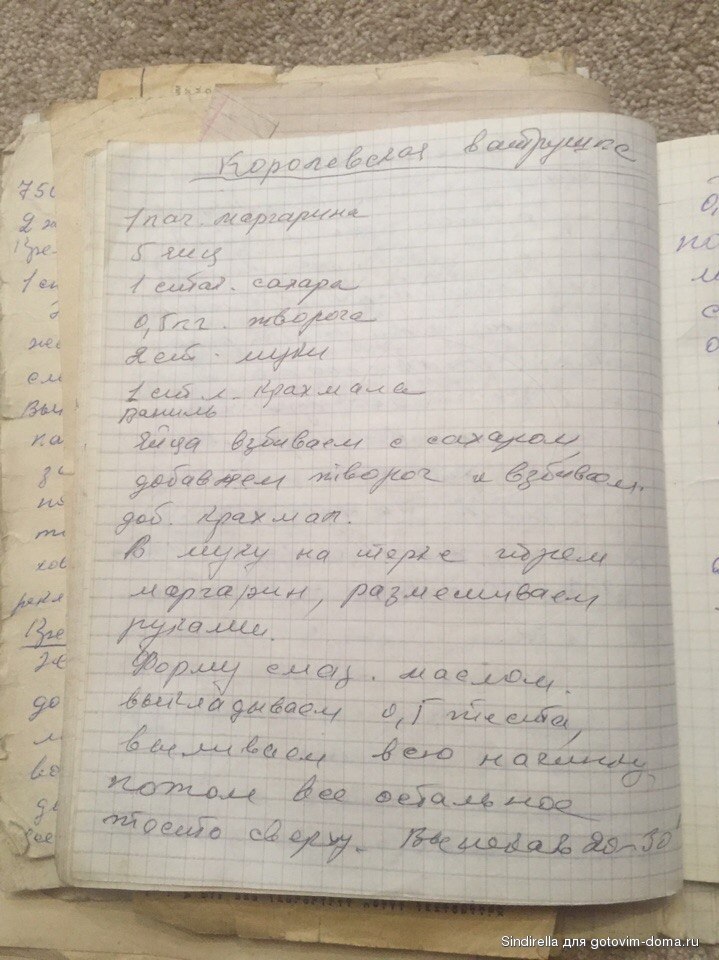 Королевская ватрушка
1 пач. маргарина
5 яиц
1 стак. сахара
0,5 кг. творога
2 ст. муки
1 ст л. крахмала
ваниль
Яйца взбиваем с сахаром,
добавляем творог и взбиваем.
доб. крахмал.
В муку на терке трем
маргарин, размешиваем
руками.
Форму смаз. маслом.
выкладываем 0,5 теста,
выливаем всю начинку,
потом все остальное
тесто сверху. Выпекать 20-30'
750
2
1 ст
Sindirella для gotovim-doma.ru